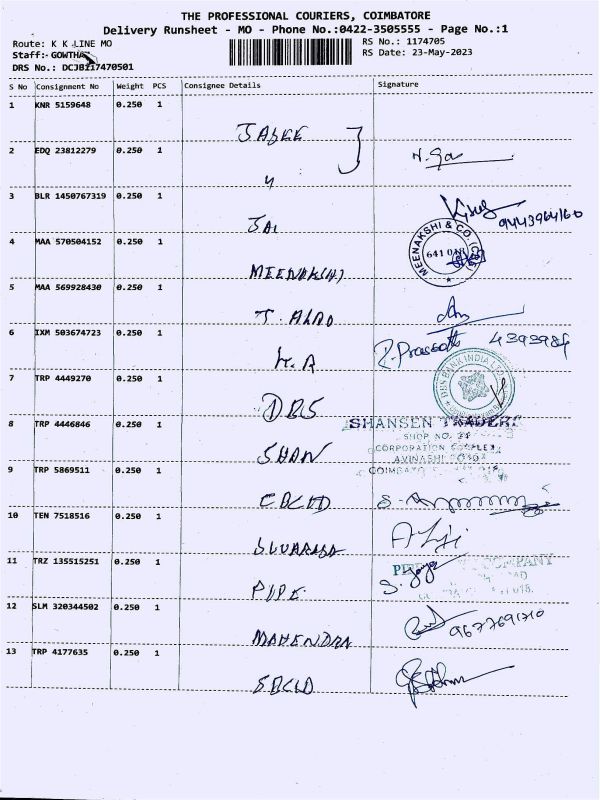 THE PROFESSIONAL COURIERS, COIMBATORE
Delivery Runsheet - MO - Phone No.:0422-3505555 - Page No.:1
Route: K K LINE MO
RS No.: 1174705
Staff:- GOWTHA
RS Date: 23-May-2023
DRS No.: DCJB117470501
S No Consignment No Weight PCS Consignee Details Signature
1 KNR 5159648 0.250 1
2 EDQ 23812279 0.250 1
3 BLR 1450767319 0.250 1 JAI 9443964160
4 MAA 570504152 0.250 1 MEENAKSHI MEENAKSHI & CO.
5 MAA 569928430 0.250 1
6 IXM 503674723 0.250 1 K.A R.Prasath
7 TRP 4449270 0.250 1 DBS DBS BANK INDIA LTD
8 TRP 4446846 0.250 1 SHAN SHANSEN TRADERS
SHOP NO. 34
CORPORATION COMPLEX
AVINASHI ROAD
9 TRP 5869511 0.250 1
10 TEN 7518516 0.250 1
11 TRZ 135515251 0.250 1 PIPE COMPANY
12 SLM 320344502 0.250 1 MAHENDRA 9677691710
13 TRP 4177635 0.250 1